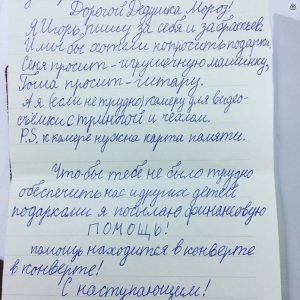 Дорогой Дедушка Мороз!
Я Игорь, пишу за себя и за братьев.
И мы бы хотели попросить подарка.
Сеня просит - игрушечную машинку,
Гоша просит - гитару.
А я (если не трудно) камеру для видео-
съёмки с триногой и чехлом.
P.S. к камере нужна карта памяти.
Что бы тебе не было трудно
обеспечить нас и других детей
подарками я посылаю финансовую
ПОМОЩЬ!
помощь находится в конверте
в конверте!
С наступающим!